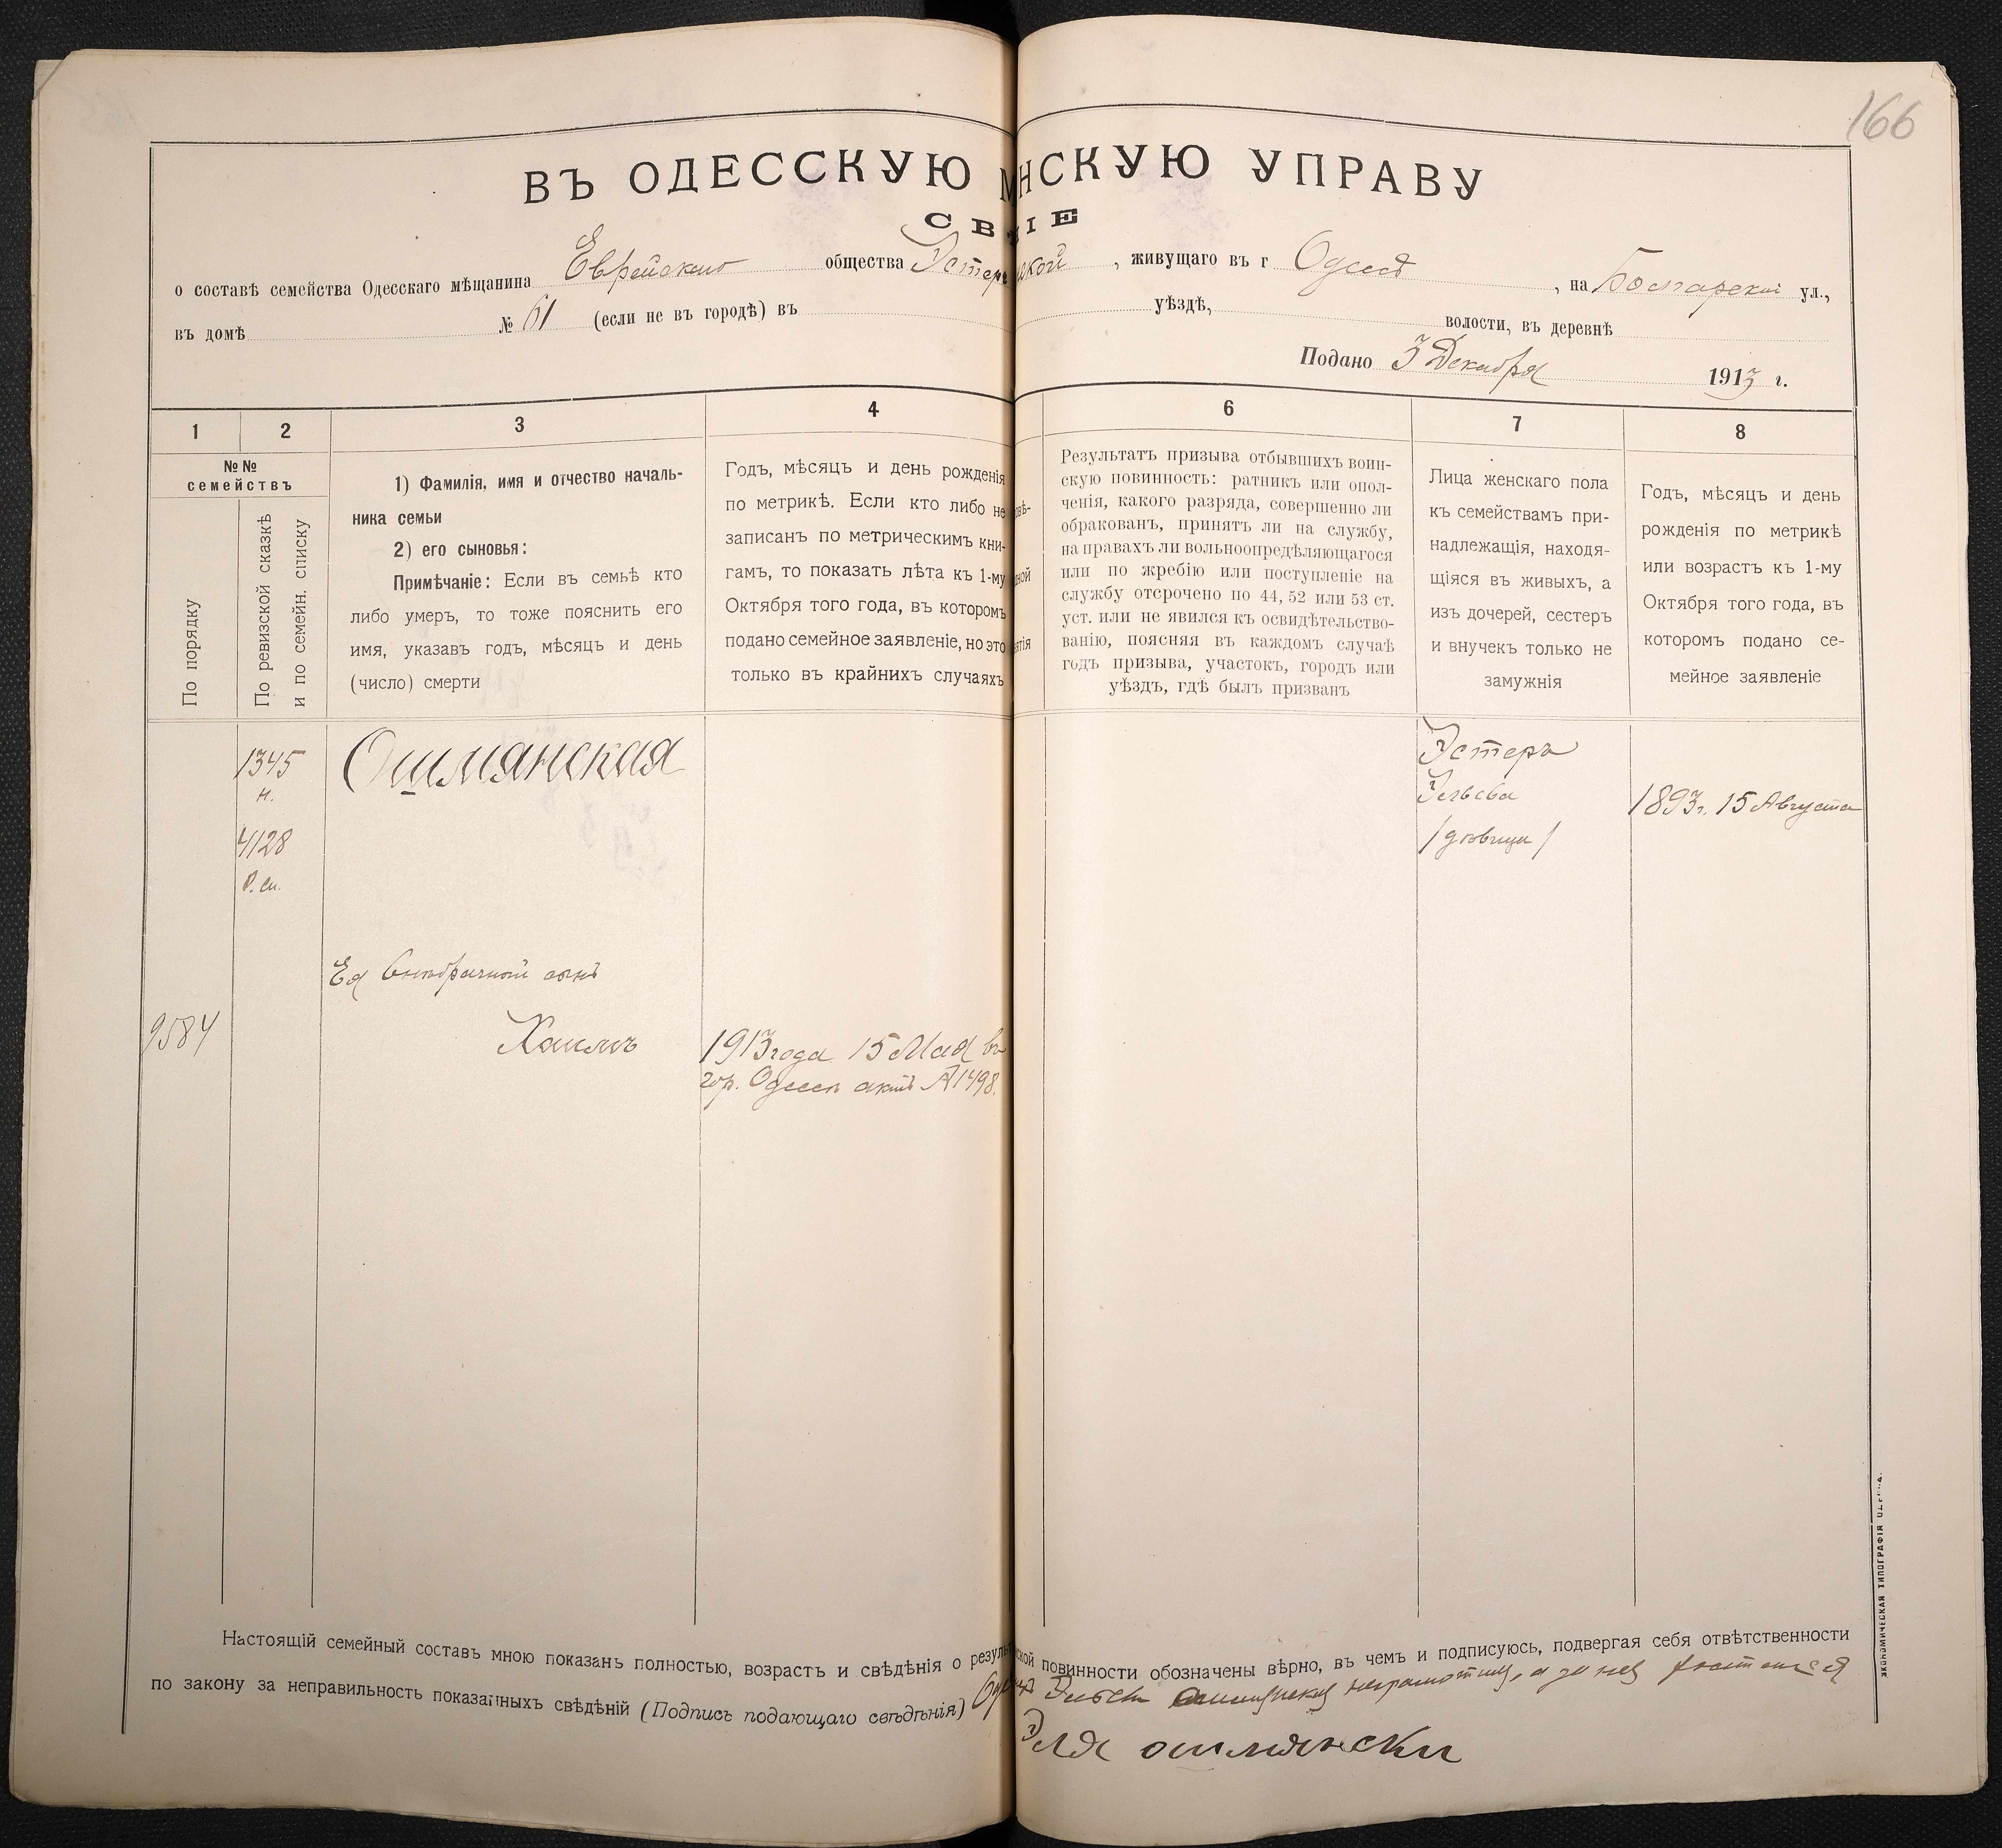 166
ВЪ ОДЕССКУЮ М НСКУЮ УПРАВУ
СВ ІЕ
о составѣ семейства Одесскаго мѣщанина Еврейскаго общества Эстер ской, живущаго въ г Одессѣ, на Болгарской ул.,
въ домѣ № 61 (если не въ городѣ) въ уѣздѣ, волости, въ деревнѣ
Подано 3 Декабря 1913 г.
1 2 3 4 6 7 8
№№
семействъ
По порядку
По ревизской сказкѣ
и по семейн. списку
1) Фамилія, имя и отчество началь-
ника семьи
2) его сыновья:
Примѣчаніе: Если въ семьѣ кто
либо умеръ, то тоже пояснить его
имя, указавъ годъ, мѣсяцъ и день
(число) смерти
Годъ, мѣсяцъ и день рожденія
по метрикѣ. Если кто либо не
записанъ по метрическимъ кни-
гамъ, то показать лѣта къ 1-му
Октября того года, въ которомъ
подано семейное заявленіе, но это
только въ крайнихъ случаяхъ
Результатъ призыва отбывшихъ воин-
скую повинность: ратникъ или опол-
ченія, какого разряда, совершенно ли
обракованъ, принятъ ли на службу,
на правахъ ли вольноопредѣляющагося
или по жребію или поступленіе на
службу отсрочено по 44, 52 или 53 ст.
уст. или не явился къ освидѣтельство-
ванію, поясняя въ каждомъ случаѣ
годъ призыва, участокъ, городъ или
уѣздъ, гдѣ былъ призванъ
Лица женскаго пола
къ семействамъ при-
надлежащія, находя-
щіяся въ живыхъ, а
изъ дочерей, сестеръ
и внучекъ только не
замужнія
Годъ, мѣсяцъ и день
рожденія по метрикѣ
или возрастъ къ 1-му
Октября того года, въ
которомъ подано се-
мейное заявленіе
1345
н.
4128
Ошмянская
Эстеръ
Эльева
/дѣвица/
1893 г. 15 Августа
Ея внебрачный сынъ
9584
Хаимъ
1913 года 15 Мая въ
гор. Одессѣ актъ № 1498.
Настоящій семейный составъ мною показанъ полностью, возрастъ и свѣдѣнія о резуль ской повинности обозначены вѣрно, въ чемъ и подписуюсь, подвергая себя отвѣтственности
по закону за неправильность показанныхъ свѣдѣній (Подпись подающаго свѣдѣнія) Эльева Ошмянская неграмотна, а за нея
Эля ошмянски
ЭКОНОМИЧЕСКАЯ ТИПОГРАФІЯ